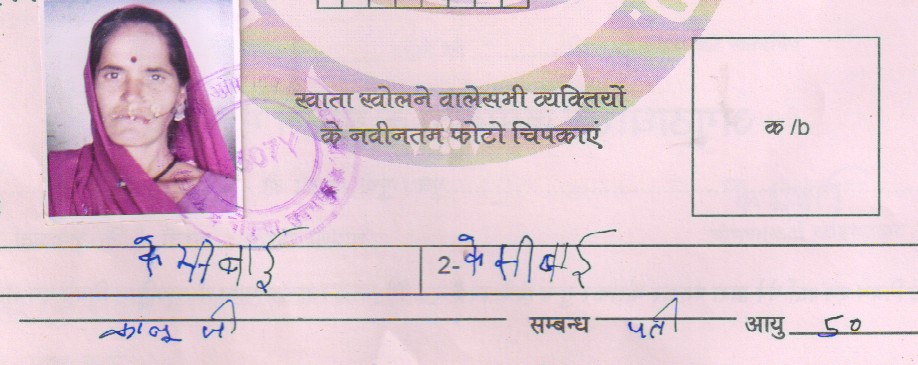 खाता खोलने वाले सभी व्यक्तियों
के नवीनतम फोटो चिपकाएं
क /b
केसीबाई 2- केसीबाई
कालू जी सम्बन्ध पती आयु 50